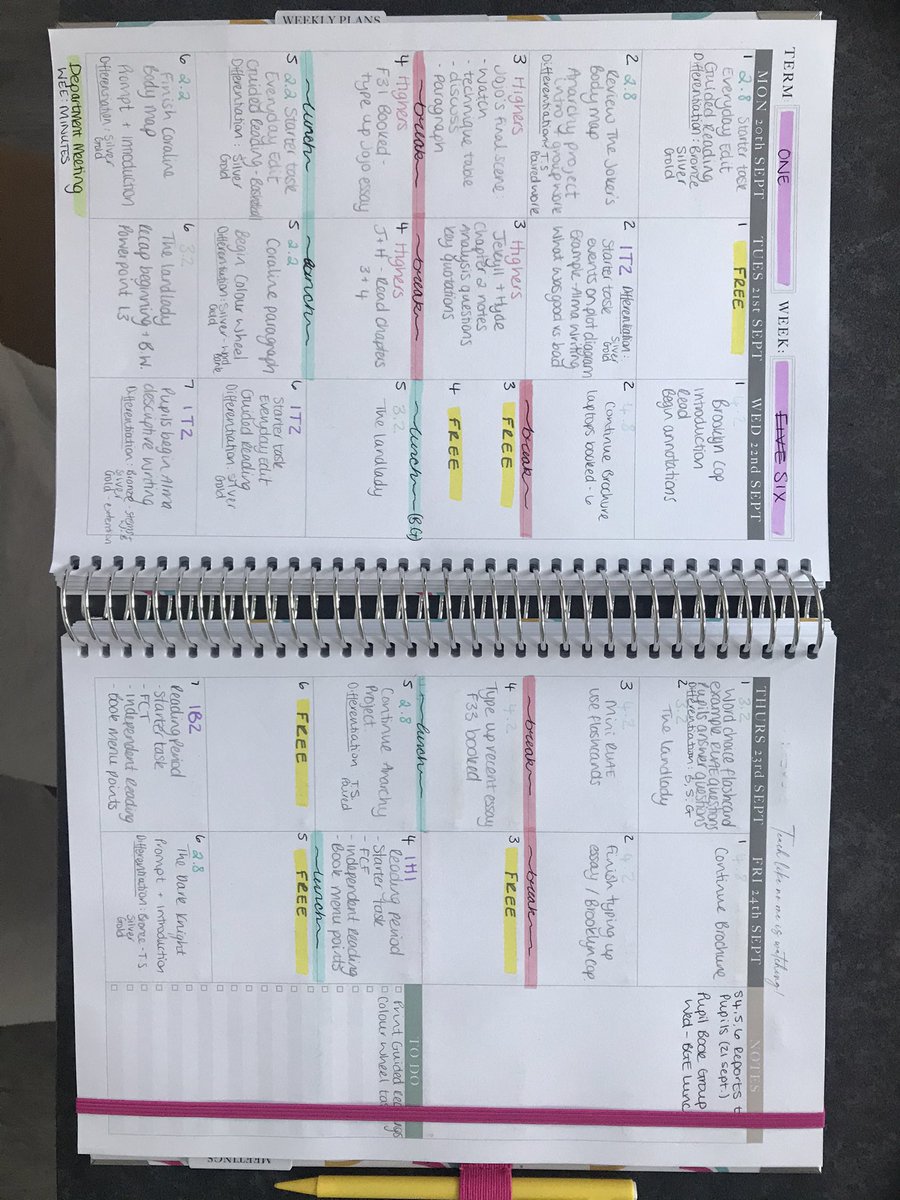 WEEKLY PLANS
TERM: ONE
WEEK: FIVE SIX
MON 20th SEPT
1 2.8 Starter task
Everyday Edit
Guided Reading
Differentiation: Bronze
Silver
Gold
2 2.8
Review The Joker's
Body Map
Anarchy project
Intro + group work
Differentiation: T.S
Paired work
3 Highers
Jojo's final scene
- Watch
- technique table
- discuss
- paragraph
~break~
4 Highers
F31 Booked -
type up Jojo essay
~lunch~
5 2.2 Starter task
Everyday Edit
Guided Reading - Basketball
Differentiation: Silver
Gold
6 2.2
Finish Coraline
Body Map
Prompt + Introduction
Differentiation: Silver
Gold
Department Meeting
WEE: MINUTES
TUES 21st SEPT
1
FREE
2 1T2 Differentiation:
Silver
Gold
Starter task
events on plot diagram
Example - Alma writing
What was good vs bad
3 Highers
Jekyll + Hyde
Chapter 2 notes
Analysis questions
key quotations
~break~
4 Highers
J+H - Read chapters
3+4
~lunch~
5 2.2
Coraline paragraph
Begin Colour Wheel
Differentiation: Silver - word
bank
Gold
6 3.2
The Landlady
Recap beginning + B.W.
Powerpoint L3
WED 22nd SEPT
1
Brooklyn Cop
Introduction
Read
Begin annotations
2 4.8
Continue Brochure
laptops booked - 6
~break~
3 FREE
4 FREE
~lunch~ (B.G)
5 3.2
The Landlady
6 1T2
Starter task
Everyday Edit
Guided Reading
Differentiation: Silver
Gold
7 1T2
Pupils begin Alma
descriptive writing
Differentiation: Bronze
Silver
Gold - extension
THURS 23rd SEPT
1 3.2
Word choice flashcard
example RUAE questions
Pupils answer questions
Differentiation: B, S, G
2 3.2
The Landlady
3 4.2
Mini RUAE
use flashcards
~break~
4 4.2
Type up recent essay
F33 booked
~lunch~
5 2.8
Continue Anarchy
Project
Differentiation: T.S.
Paired
6
FREE
7 1B2
Reading Period
- Starter task
- FCT
- Independent Reading
- Book menu points
Teach like no one is watching!
FRI 24th SEPT
1 4.8
Continue Brochure
2 4.2
Finish typing up
essay / Brooklyn Cop
~break~
3 FREE
4 1H1
Reading Period
- Starter task
- FCF
- Independent Reading
- Book menu points
~lunch~
5 FREE
6 2.8
The Dark Knight
Prompt + Introduction
Differentiation: Bronze - T.S
Silver
Gold
NOTES
S4,5,6 Reports t
Pupils (21 sept.)
Pupil Book Group
Wed - BGE Lunc
TO DO
Print Guided Readings
Colour Wheel tas
MEETINGS